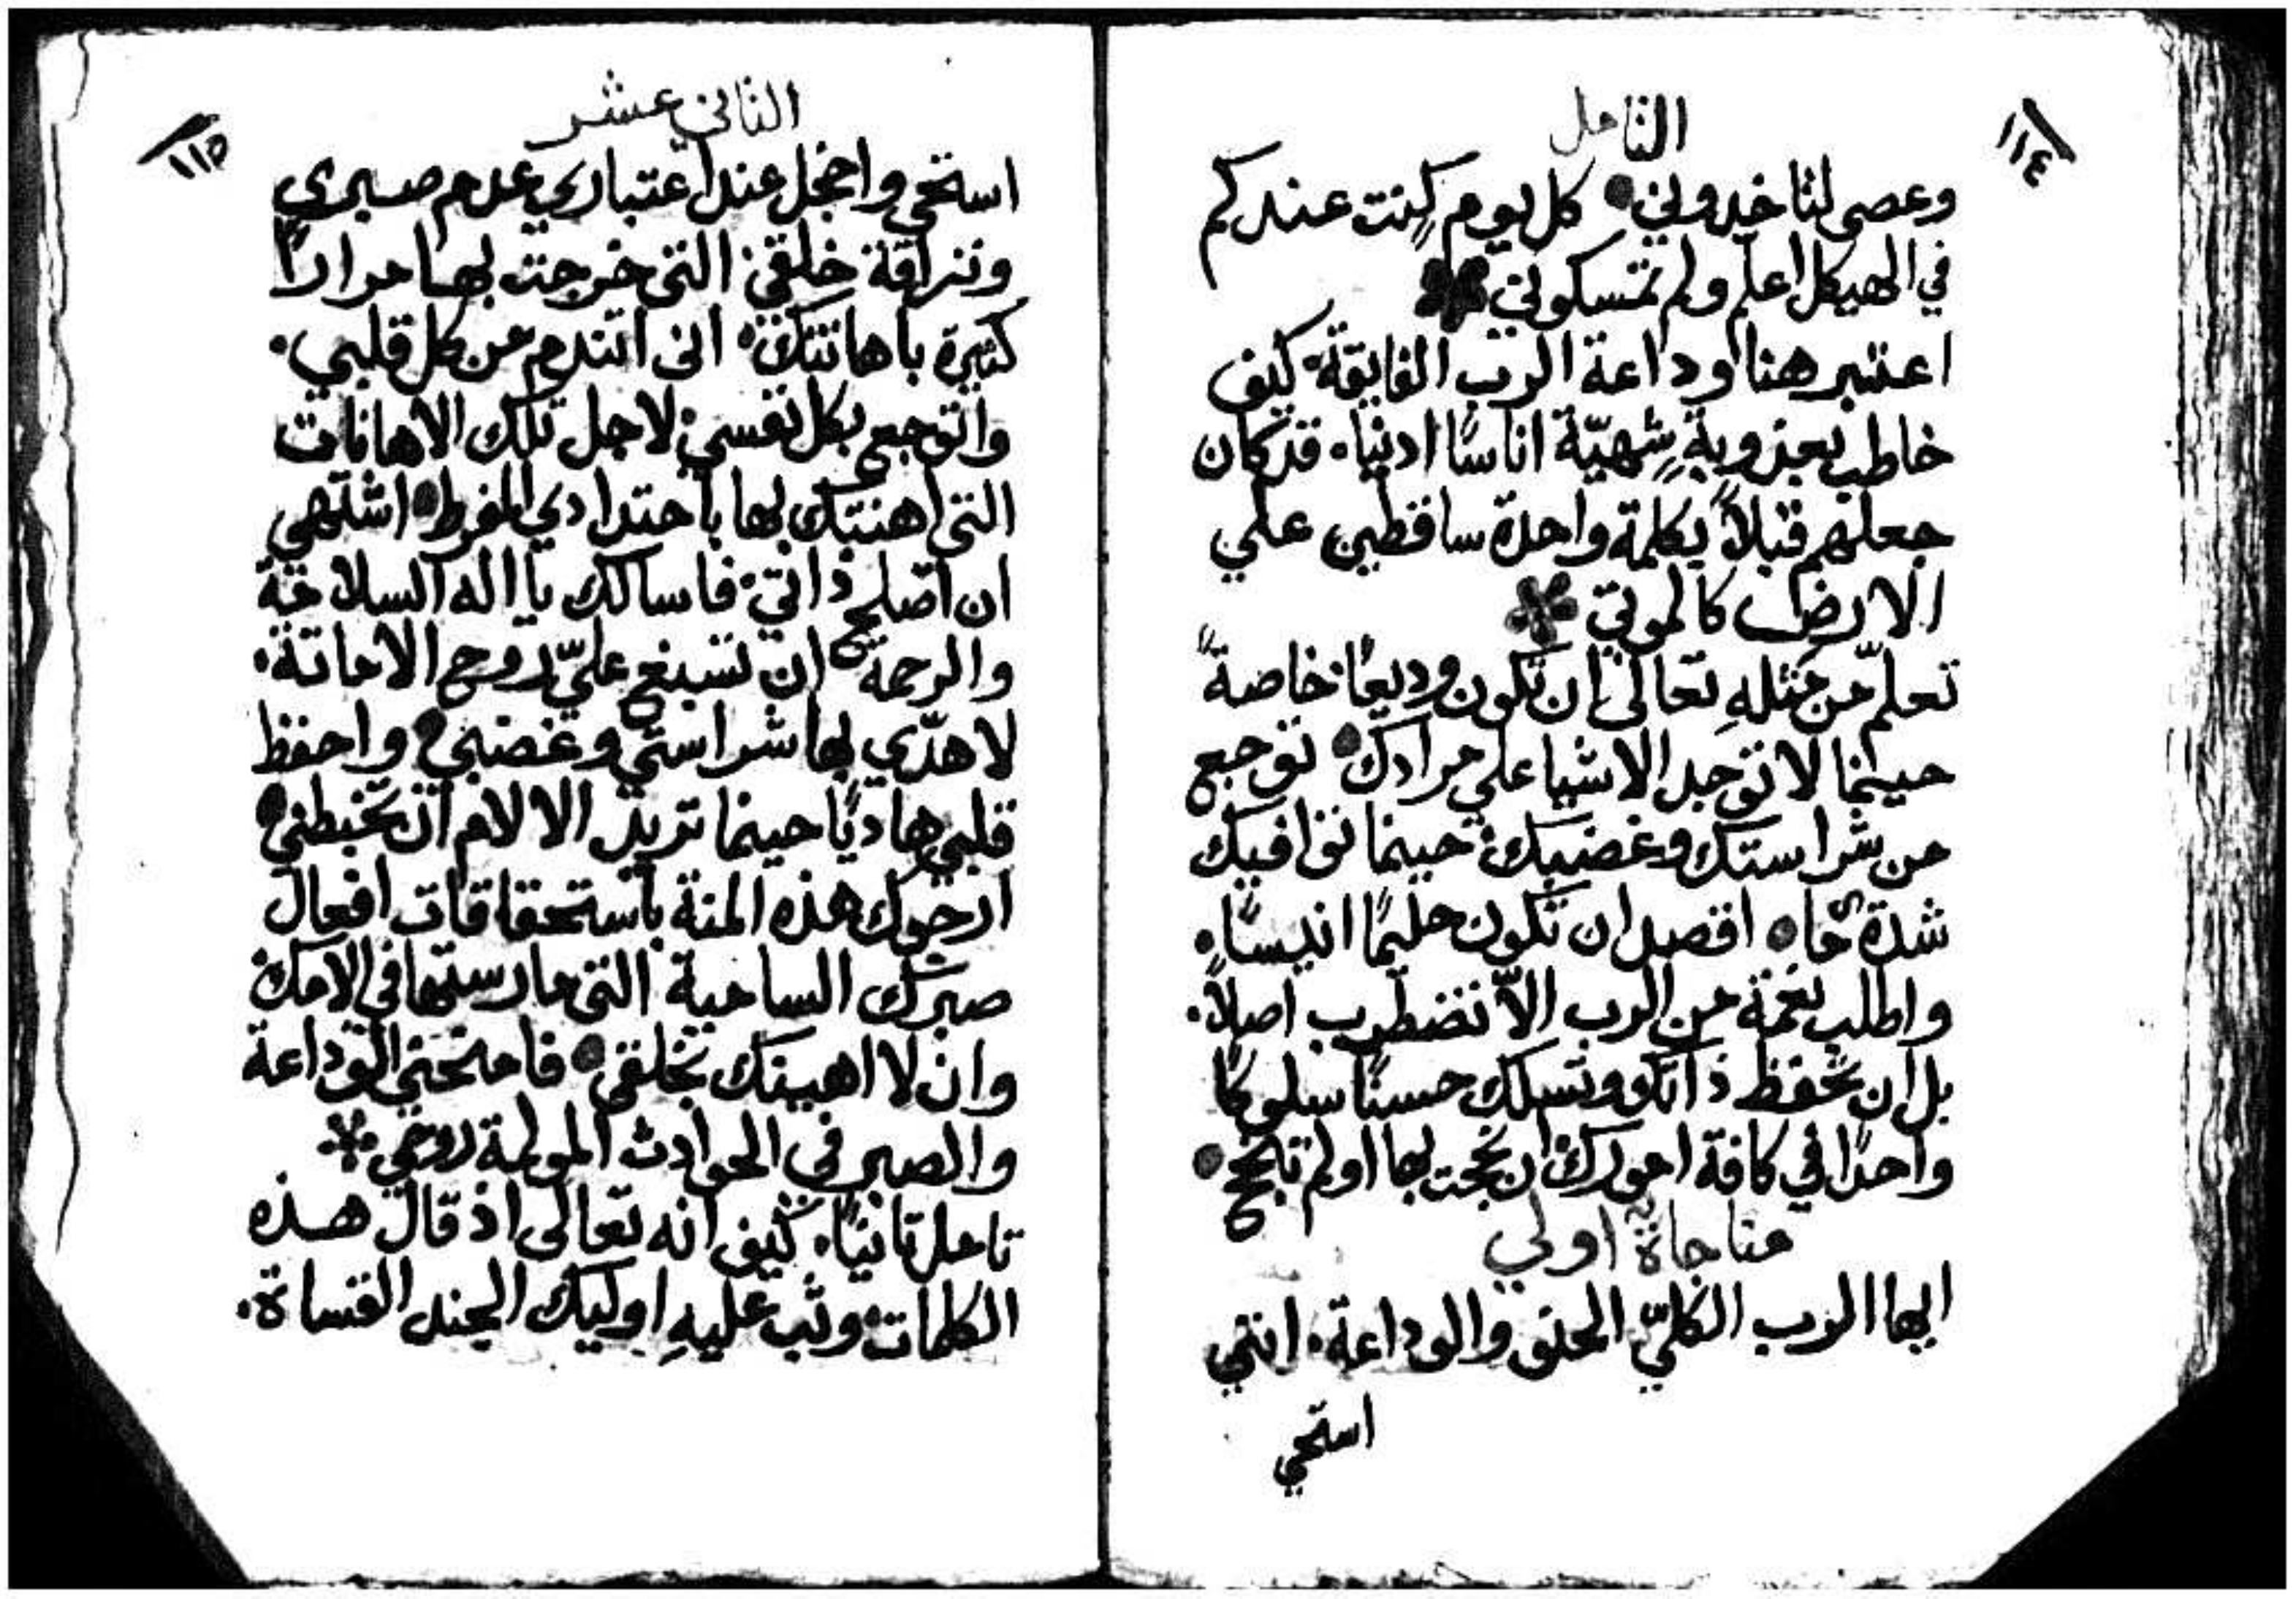 ١١٤
التامل
وعصي لتاخدوني • كل يوم كنت عندكم
في الهيكل اعلم ولم تمسكوني
اعتبر هنا وداعة الرب الفايقة كيف
خاطب بعذوبةٍ شهيّة اناسًا ادنيا. قد كان
جعلهم قبلاً بكلمة واحدة ساقطين علي
الارض كالموتي
تعلّم من مثلهِ تعالى ان تكون وديعًا خاصةً
حينما لا توجد الاشيا علي مرادك • توجع
من شراستك وغضبك حينما توافيك
شدة ما • اقصد ان تكون حليمًا انيسًا.
واطلب نعمة من الرب الاّ تضطرب اصلاً.
بل ان تحفظ ذاتك وتسلك حسنًا سلوكًا
واحدًا في كافة امورك ان نجحت بها اولم تنجح •
مناجاة اولي
ايها الرب الكليّ الحنو والوداعة. انني
استحي
١١٥
الثاني عشر
استحي واخجل عند اعتباري عدم صبري
ونزاقة خلقي التي خرجت بها مرارًا
كثيرة باهانتك. اني اتندم من كل قلبي.
واتوجع بكل نفسي لاجل تلك الاهانات
التي اهنتك بها باحتدادي المفرط • اشتهي
ان اصلح ذاتي فاسالك يا اله السلامة
والرحمة ان تسبغ عليّ روح الاماتة.
لاهدّي بها شراستي وغضبي • واحفظ
قلبي هاديًا حينما تريد الالام ان تخبطني •
ارجوك هذه المنة باستحقاقات افعال
صبرك السامية التي مارستها في الامك
وان لا اهينك بخلقي • فامنحني الوداعة
والصبر في الحوادث المولمة روحي
تامل ثانيًا. كيف انه تعالى اذ قال هذه
الكلمات وثب عليهِ اوليك الجند القساة.